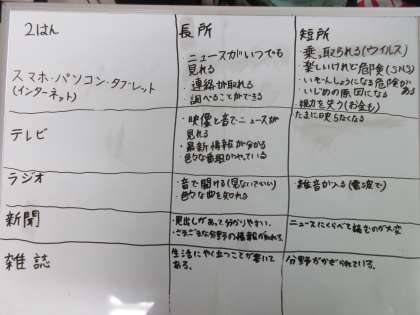 2はん
長所
短所
スマホ・パソコン・タブレット
(インターネット)
・ニュースがいつでも
見れる
・連絡が取れる
・調べることができる
・乗っ取られる(ウイルス)
・楽しいけれど危険(SNS)
・いじめの原因になる
視力を失う(お金も)
テレビ
・映像と音でニュースが
見れる
・最新情報が分かる
・色々な番組がやっている
たまに映らなくなる
ラジオ
・音で聞ける(見ないでいい)
・色々な曲を知れる
雑音が入る(電波で)
新聞
・見出しがあって分かりやすい。
・さまざまな分野の情報がとれる。
ニュースにくらべて読むのが大変
雑誌
生活にやく立つことが書いて
ある。
分野がかぎられている。